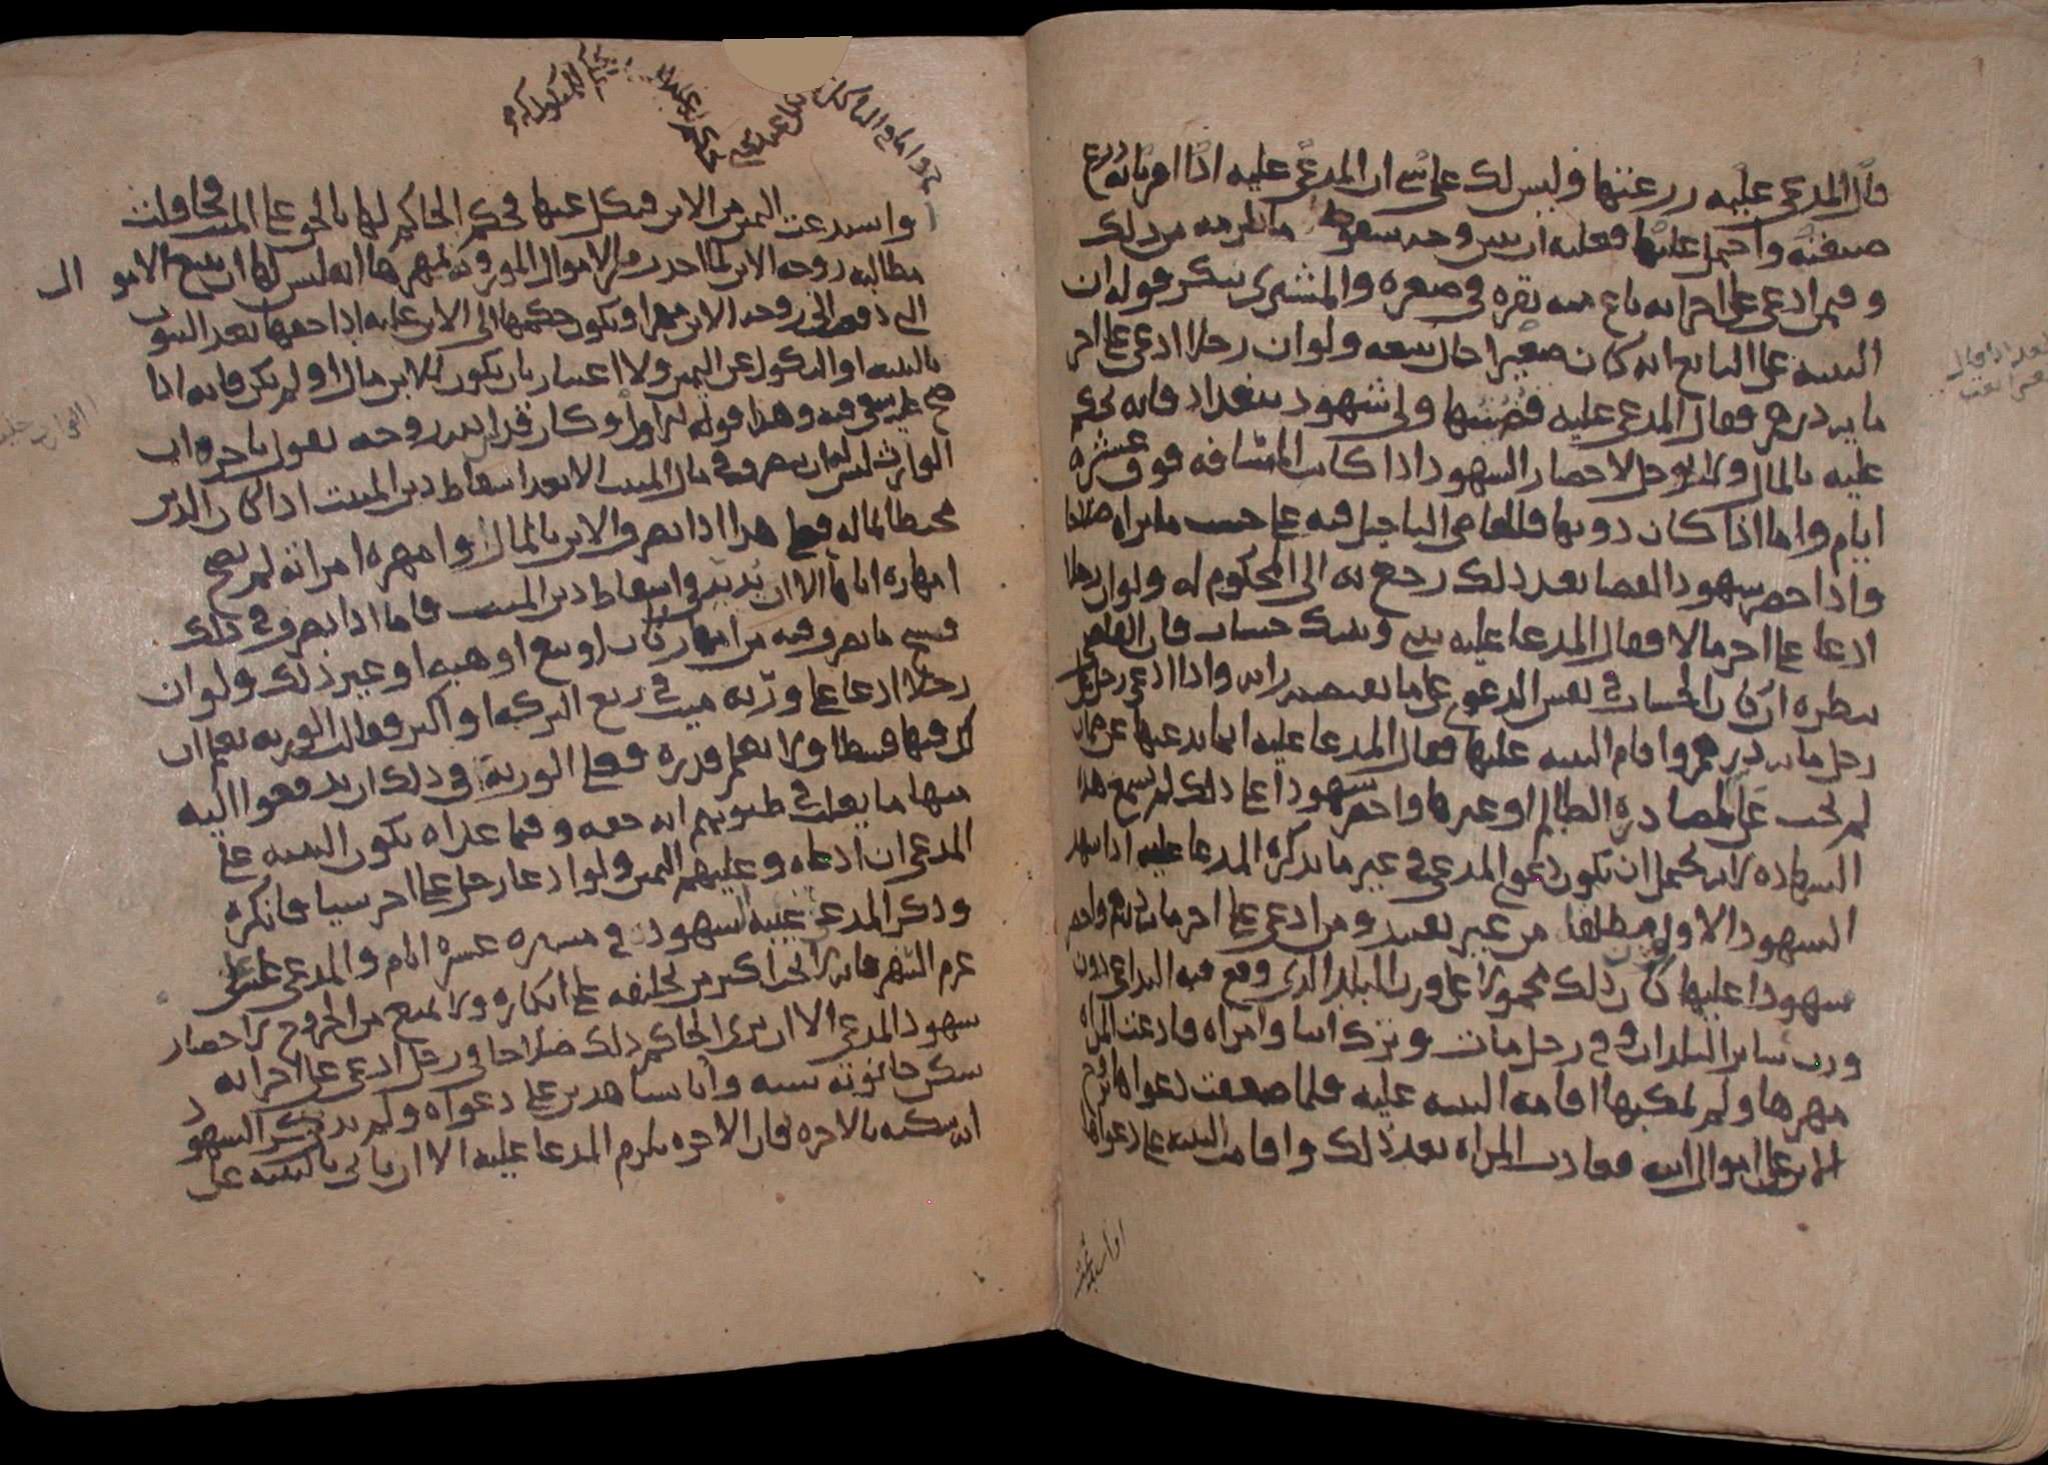 قال المدعى عليه زرعتها وليس لك على شي ان المدعى عليه اذا اقر بانه زرع
ضيفته واحيل عليها فعليه ان يبين وجه سقوط ما يلزمه من ذلك
وفيمن ادعى على اخر انه باع منه بقره في صغره والمشترى ينكر قوله ان
البينه على البايع انه كان صغيرا حال بيعه ولو ان رجلا ادعى على اخر
مايه درهم فقال المدعى عليه قضيتها ولى شهود ببغداد فانه يحكم
عليه بالمال ولا يوجل لاحضار الشهود اذا كانت المسافه فوق عشره
ايام واما اذا كان دونها فللقاضى التاجيل فيه على حسب ما يراه صلاحا
واذا حضر شهود القضا بعد ذلك رجع به الى المحكوم له ولو ان رجلا
ادعا على اخر مالا فقال المدعا عليه بينى وبينك حساب فان القاضى
ينظره ان كان الحساب في نفس الدعوى على ما يقتضيه رايه واذا ادعى رجل على
رجل مايه درهم واقام البينه عليها فقال المدعا عليه انما يدعيها عن ضمان
لم يجب على لمصادره الظالم او غيرها واحضر شهودا على ذلك لم تسمع هذه
الشهاده لانه يحتمل ان تكون دعوى المدعى في غير ما يذكره المدعا عليه اذا شهد
الشهود الاول مطلقا من غير تقييد ومن ادعى على اخر مايه درهم واحضر
شهودا عليها كان ذلك محمولا على وزن البلد الذى وقع فيه التداعى دون
وزن ساير البلدان وفي رجل مات وترك ابنا وامراه فادعت المراه
مهرها ولم يمكنها اقامه البينه عليه فلما ضعفت دعواها تزوج
الابن على اموال ابيه فعادت المراه بعد ذلك واقامت البينه على دعواها
او استدعت
واستدعت اليمين من الابن فنكل عنها فحكم الحاكم لها بالحق على الميت فحاولت
مطالبه زوجه الابن بما اخذت من الاموال الموروثه لمهرها انه ليس لها ان تتبع الاموال
التى دفعت الى زوجه الابن مهرا ويكون حكمها الى الابن عليه اذا حقها بعد الثبوت
بالبينه او النكول عن اليمين ولا اعتبار بان يكون للابن مال او لم يكن فانه اذا
صح عليه سعى فيه وهذا قوله اولا وكان قدس الله روحه يقول باخره ان
الوارث ليس له ان يتصرف في مال الميت الا بعد اسقاط دين الميت اذا كان الدين
محيطا بماله فعلى هذا اذا تصرف الابن بالمال وامهره امراته لم يصح
امهاره اياها الا ان يبتدى في اسقاط دين الميت فاما اذا تصرف في ذلك
فسخ ما تصرف فيه من امهار كان او بيع او هبه او غير ذلك ولو ان
رجلا ادعا على ورثه ميت في ربع التركه او اكثر فقالت الورثه نعلم ان
لك فيها قسطا ولا نعلم قدره فعلى الورثه في ذلك ان يدفعوا اليه
منها ما يغلب في ظنونهم انه حقه وفيما عداه تكون البينه على
المدعى ان ادعاه وعليهم اليمين ولو ادعا رجل على اخر شيا فانكره
وذكر المدعى غيبه الشهود في مسيره عشره ايام والمدعى عليه على
عزم السفر فانه لا يجب اكثر من تحليفه على انكاره ولا يمنع من الخروج لاحضار
شهود المدعى الا ان يرى الحاكم ذلك صلاحا وفي رجل ادعى على اخر انه
سكن حانوته سنه واتا بشاهدين على دعواه ولم يذكر الشهود
انه سكنه بالاجره فان الاجره يلزم المدعا عليه الا ان ياتى بالبينه على